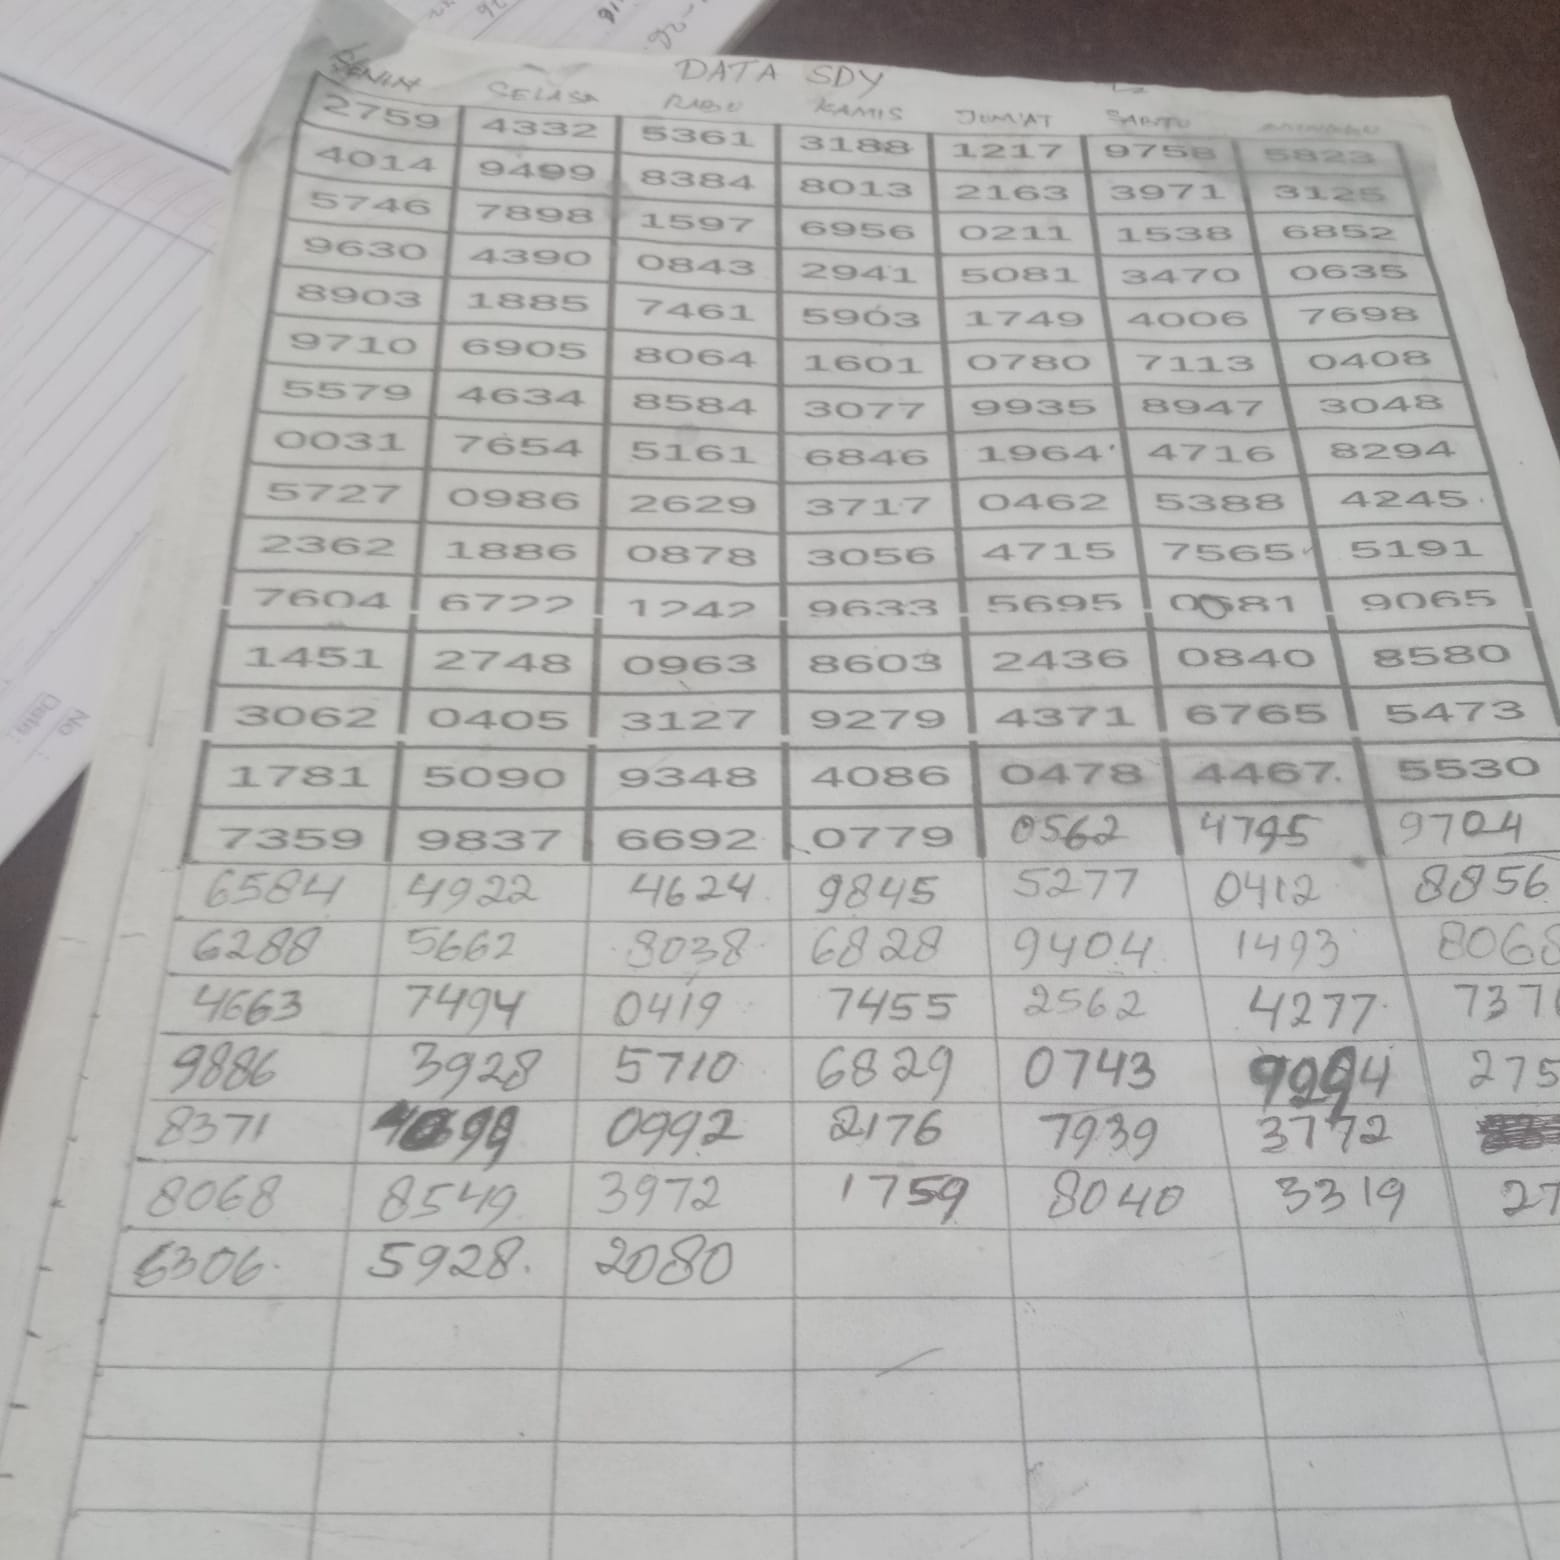 DATA SDY
SENIN SELASA RABU KAMIS JUM'AT SABTU MINGGU
2759 4332 5361 3188 1217 9758 5823
4014 9499 8384 8013 2163 3971 3125
5746 7898 1597 6956 0211 1538 6852
9630 4390 0843 2941 5081 3470 0635
8903 1885 7461 5903 1749 4006 7698
9710 6905 8064 1601 0780 7113 0408
5579 4634 8584 3077 9935 8947 3048
0031 7654 5161 6846 1964 4716 8294
5727 0986 2629 3717 0462 5388 4245
2362 1886 0878 3056 4715 7565 5191
7604 6722 1242 9633 5695 9065
1451 2748 0963 8603 2436 0840 8580
3062 0405 3127 9279 4371 6765 5473
1781 5090 9348 4086 0478 4467 5530
7359 9837 6692 0779 0562 4795 9704
6584 4922 4624 9845 5277 0412 8856
6288 5662 8038 6828 9404 1493 8068
4663 7494 0419 7455 2562 4277 737
9886 3928 5710 6829 0743 275
8371 0992 2176 7939 3772
8068 8549 3972 1759 8040 3319 27
6306 5928 2080
No
Date